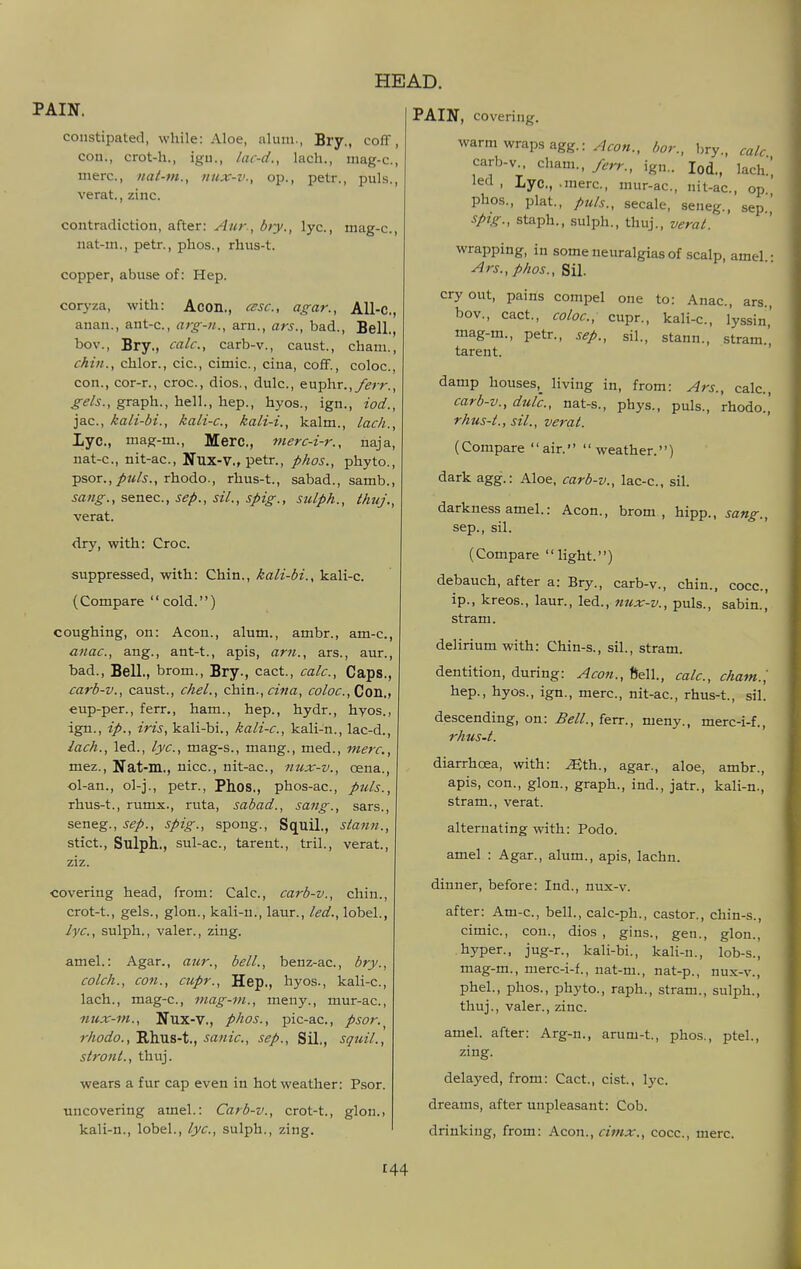 HEAD.
PAIN.
constipated, while: Aloe, alum., Bry., coff,
con., crot-h., ign., lac-d., lach., mag-c.,
merc., nat-m., nux-v., op., petr., puls.,
verat., zinc.
contradiction, after: Aur., bry., lyc., mag-c.,
nat-m., petr., phos., rhus-t.
copper, abuse of: Hep.
coryza, with: Acon., æsc., agar., All-c.,
anan., ant-c., arg-n., arn., ars., bad., Bell.,
bov., Bry., calc., carb-v., caust., cham.,
chin., chlor., cic., cimic., cina, coff., coloc.,
con., cor-r., croc., dios., dulc., euphr., ferr.,
gels., graph., hell., hep., hyos., ign., iod.,
jac., kali-bi., kali-c., kali-i., kalm., lach.,
Lyc., mag-m., Merc., merc-i-r., naja,
nat-c., nit-ac., Nux-v., petr., phos., phyto.,
psor., puls., rhodo., rhus-t., sabad., samb.,
sang., senec., sep., sil., spig., sulph., thuj.,
verat.
dry, with: Croc.
suppressed, with: Chin., kali-bi., kali-c.
(Compare “cold.”)
coughing, on: Acon., alum., ambr., am-c.,
anac., ang., ant-t., apis, arn., ars., aur.,
bad., Bell., brom., Bry., cact., calc., Caps.,
carb-v., caust., chel., chin., cina, coloc., Con.,
eup-per., ferr., ham., hep., hydr., hyos.,
ign., ip., iris, kali-bi., kali-c., kali-n., lac-d.,
lach., led., lyc., mag-s., mang., med., merc.,
mez., Nat-m., nicc., nit-ac., nux-v., œna.,
ol-an., ol-j., petr., Phos., phos-ac., puls.,
rhus-t., rumx., ruta, sabad., sang., sars.,
seneg., sep., spig., spong., Squil., stann.,
stict., Sulph., sul-ac., tarent., tril., verat.,
ziz.
covering head, from: Calc., carb-v., chin.,
crot-t., gels., glon., kali-n., laur., led., lobel.,
lyc., sulph., valer., zing.
amel.: Agar., aur., bell., benz-ac., bry.,
colch., con., cupr., Hep., hyos., kali-c.,
lach., mag-c., mag-m., meny., mur-ac.,
nux-m., Nux-v., phos., pic-ac., psor.,
rhodo., Rhus-t., sanic., sep., Sil., squil.,
stront., thuj.
wears a fur cap even in hot weather: Psor.
uncovering amel.: Carb-v., crot-t., glon.,
kali-n., lobel., lyc., sulph., zing.
PAIN, covering.
warm wraps agg.: Acon., bor., bry., calc.,
carb-v., cham., ferr., ign.. Iod., lach.,
led , Lyc., .merc., mur-ac., nit-ac., op.,
phos., plat., puls., secale, seneg., sep.,
spig., staph., sulph., thuj., verat.
wrapping, in some neuralgias of scalp, amel.:
Ars., phos., Sil.
cry out, pains compel one to: Anac., ars.,
bov., cact., coloc., cupr., kali-c., lyssin,
mag-m., petr., sep., sil., stann., stram.,
tarent.
damp houses, living in, from: Ars., calc.,
carb-v., dulc., nat-s., phys., puls., rhodo.,
rhus-t., sil., verat.
(Compare “air.” “weather.”)
dark agg.: Aloe, carb-v., lac-c., sil.
darkness amel.: Acon., brom , hipp., sang.,
sep., sil.
(Compare “light.”)
debauch, after a: Bry., carb-v., chin., cocc.,
ip., kreos., laur., led., nux-v., puls., sabin.,
stram.
delirium with: Chin-s., sil., stram.
dentition, during: Acon., Bell., calc., cham.,
hep., hyos., ign., merc., nit-ac., rhus-t., sil.
descending, on: Bell., ferr., meny., merc-i-f.,
rhus-t.
diarrhœa, with: Æth., agar., aloe, ambr.,
apis, con., glon., graph., ind., jatr., kali-n.,
stram., verat.
alternating with: Podo.
amel : Agar., alum., apis, lachn.
dinner, before: Ind., nux-v.
after: Am-c., bell., calc-ph., castor., chin-s.,
cimic., con., dios , gins., gen., glon.,
hyper., jug-r., kali-bi., kali-n., lob-s.,
mag-m., merc-i-f., nat-m., nat-p., nux-v.,
phel., phos., phyto., raph., stram., sulph.,
thuj., valer., zinc.
amel. after: Arg-n., arum-t., phos., ptel.,
zing.
delayed, from: Cact., cist., lyc.
dreams, after unpleasant: Cob.
drinking, from: Acon., cimx., cocc., merc.
144